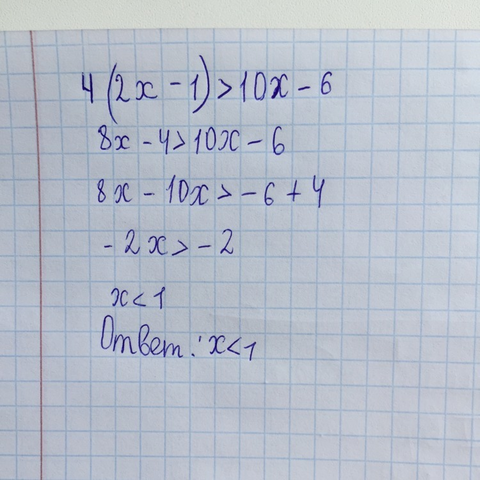 4(2x - 1) > 10x - 6
8x - 4 > 10x - 6
8x - 10x > -6 + 4
-2x > -2
x < 1
Ответ: x < 1